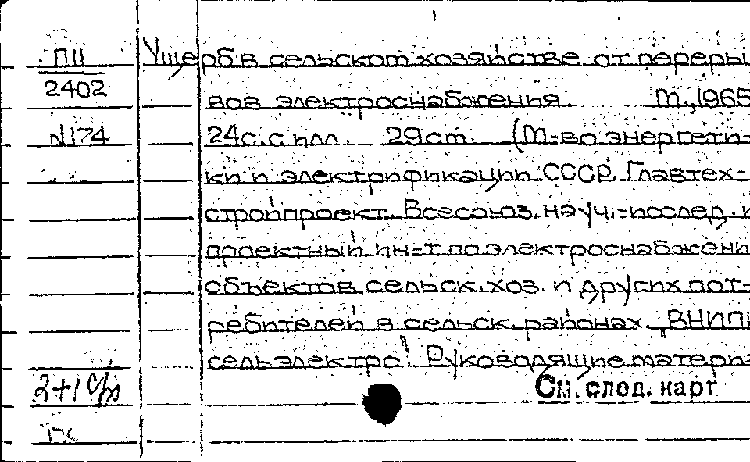 ПЦ
2402
№174
Ущерб в сельском хозяйстве от переры-
вов электроснабжения. М., 1965
24с. с илл. 29см. (М-во энергети-
ки и электрификации СССР. Главтех-
стройпроект. Всесоюз. науч.-исслед. и
проектный ин-т по электроснабжени
объектов сельск. хоз. и других пот-
ребителей в сельск. районах „ВНИПИ
сельэлектро". Руководящие материа
2+1
См. след. карт